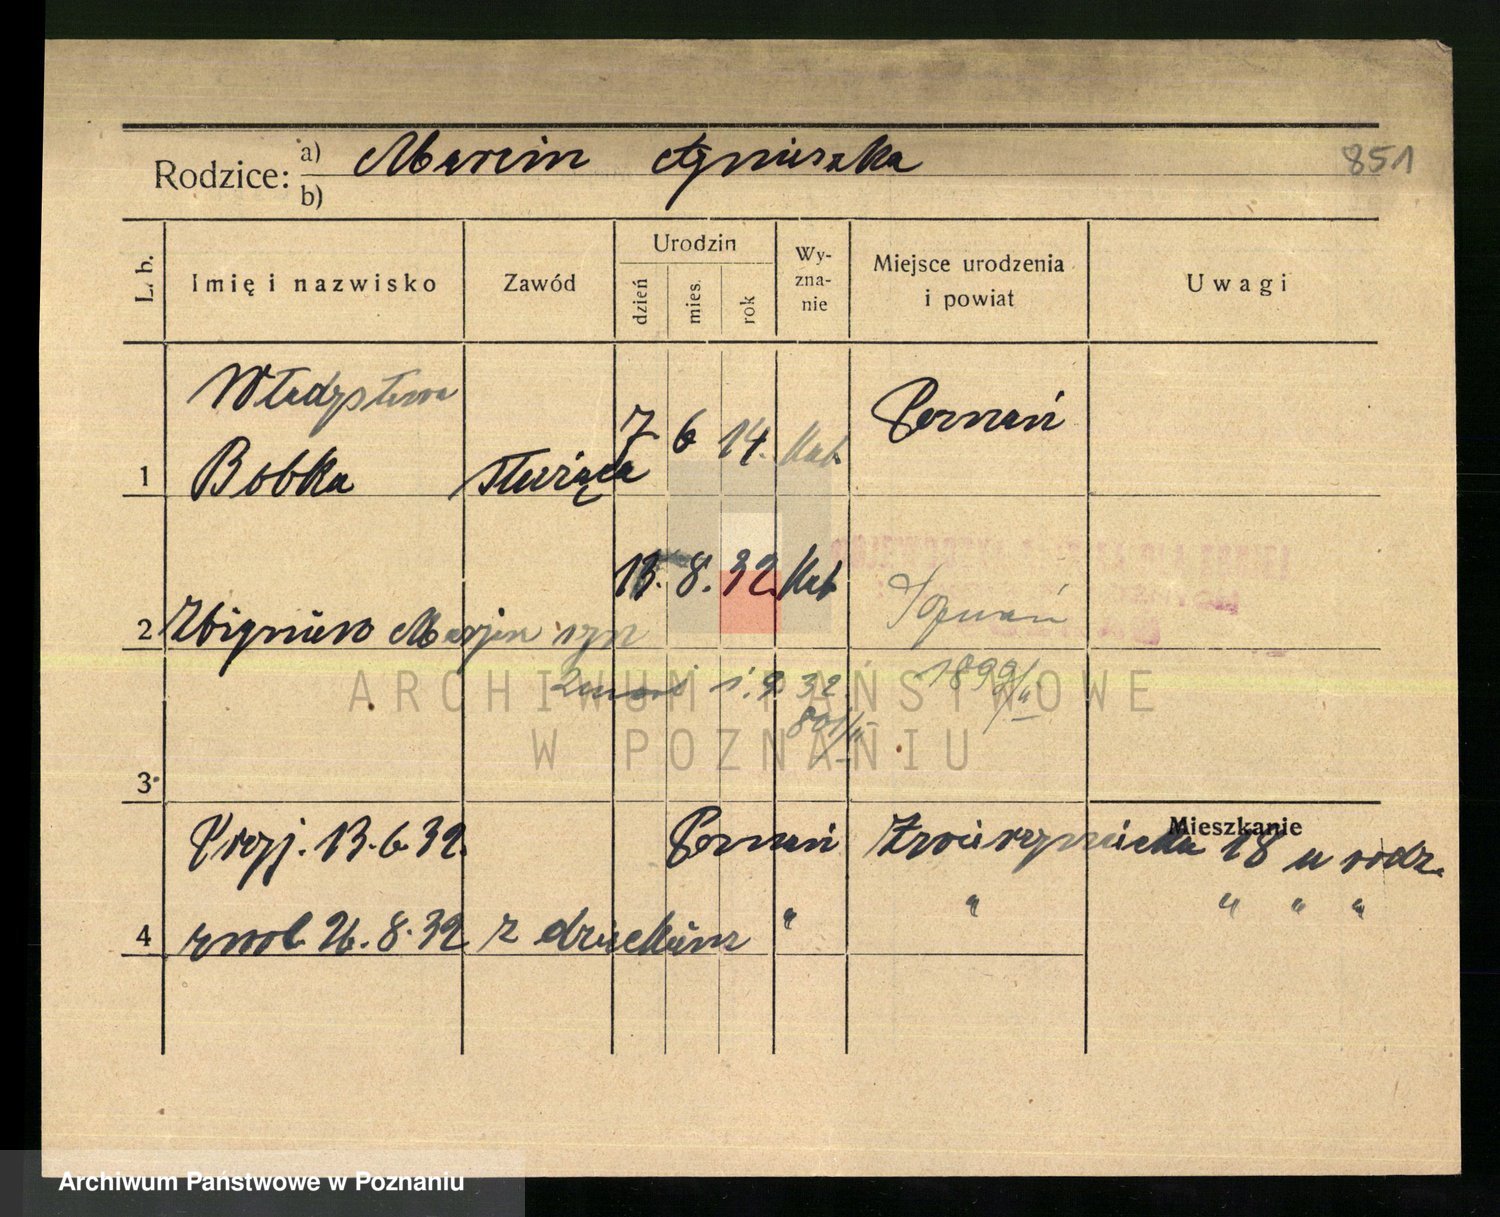 Rodzice: a) Marcin Agnieszka 851
b)
L. b. Imię i nazwisko Zawód Urodzin dzień mies. rok Wy-zna-nie Miejsce urodzenia i powiat Uwagi
Władysława
Bobka służąca 7 6 14. kat. Poznań
1
13. 8. 32. kat Poznań
2 Zbigniew Marjan syn
1. 9 32 1899/II
801/II
3
Mieszkanie
Przyj. 13. 6 32. Poznań Zwierzyniecka 18 u rodz.
4 zwol. 26. 8. 32 z dzieckiem " " " " "
ARCHIWUM PAŃSTWOWE
W POZNANIU
Archiwum Państwowe w Poznaniu